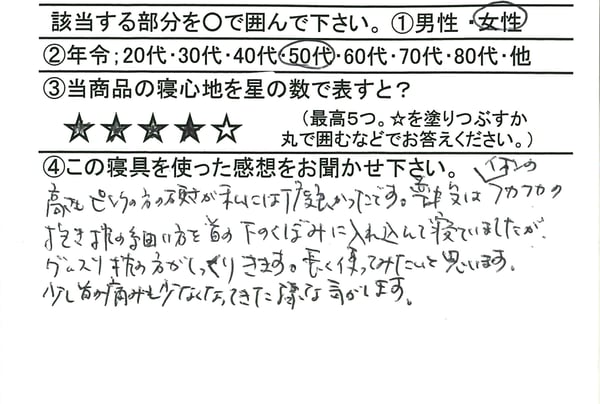 該当する部分を〇で囲んで下さい。①男性・女性
②年令；20代・30代・40代・50代・60代・70代・80代・他
③当商品の寝心地を星の数で表すと？
★★★★☆ （最高5つ。☆を塗りつぶすか
丸で囲むなどでお答えください。）
④この寝具を使った感想をお聞かせ下さい。
高さもピンクの方の硬さが私には丁度良かったです。普段はイオンのフカフカの
抱き枕の細い方を首の下のくぼみに入れ込んで寝ていましたが
グースリ枕の方がしっくりきます。長く使ってみたいと思います。
少し首の痛みも少なくなってきた様な気がします。